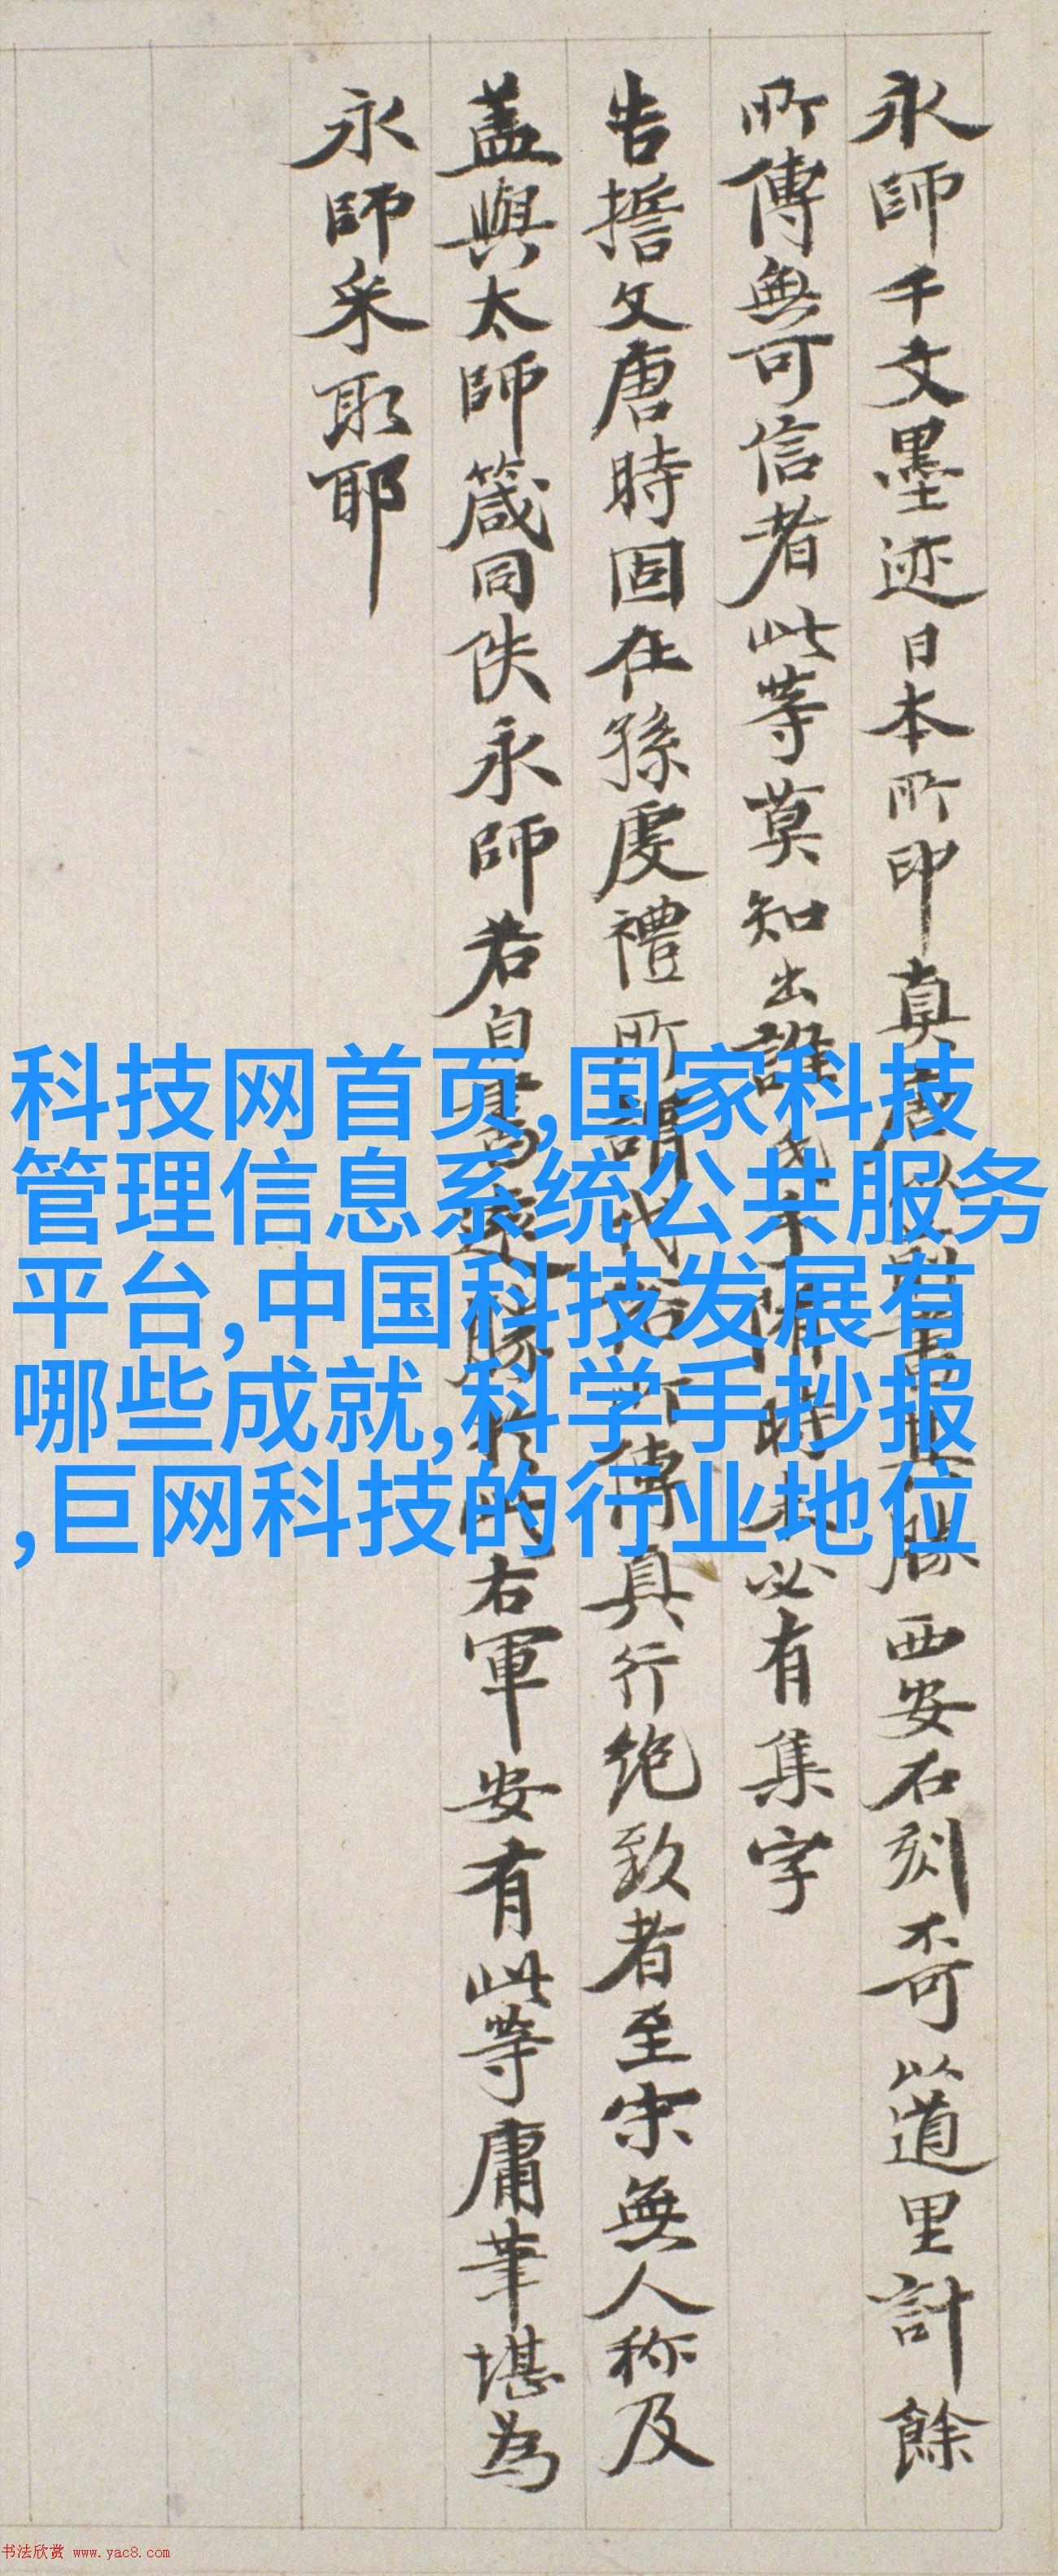 永師千文墨迹日本所印真
西安石刻奇以道里計餘
所傳無可信者此等莫知出誰
時 必有集字
告誓文唐時固在孫虔禮所謂
傳真行绝致者至宋無人称及
盖與太師箴同佚永師若自書
右軍安有此等庸筆堪為
永師采取耶
科技网首页,国家科技
管理信息系统公共服务
平台,中国科技发展有
哪些成就,科学手抄报
,巨网科技的行业地位
书法欣赏 www.yac8.com